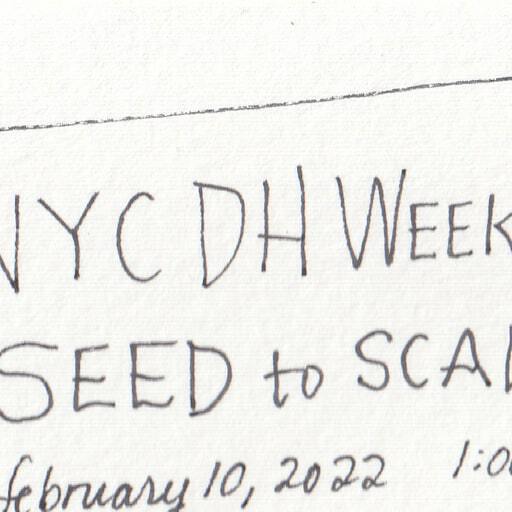 NYC DH WEEK
SEED to SCAL
february 10, 2022 1:00